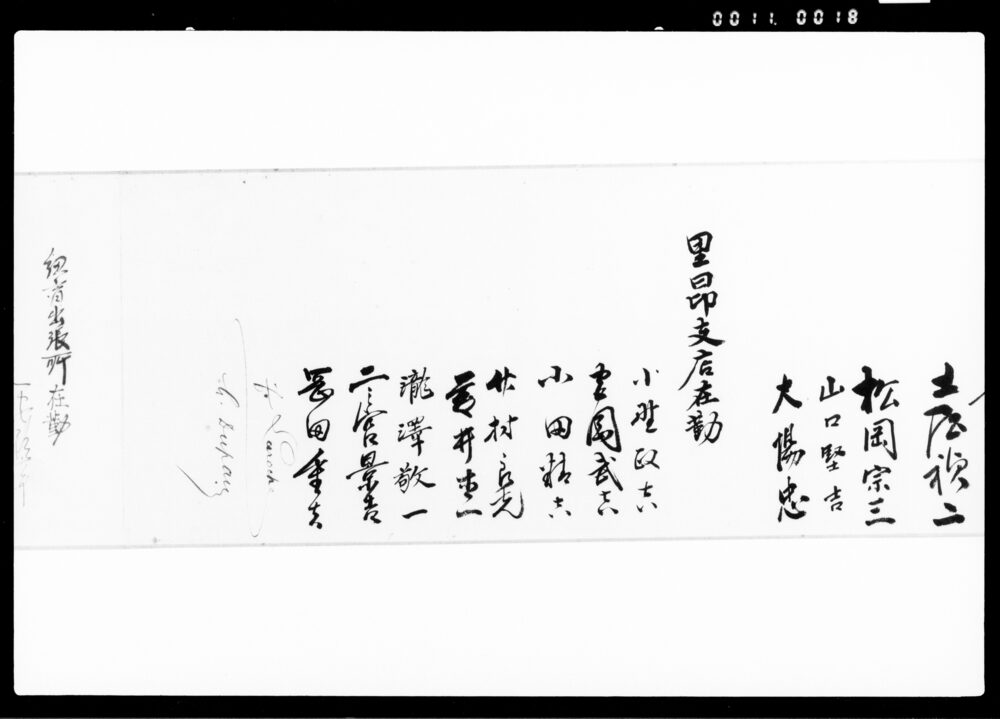 0011. 0018
土屋禎二
松岡宗三
山口堅吉
大傷忠
里昂支店在勤
小野政吉
吉岡武吉
小田精吉
村良光
井 一
瀧澤敬一
二宮景吉
岡田重吉
紐育出張所在勤